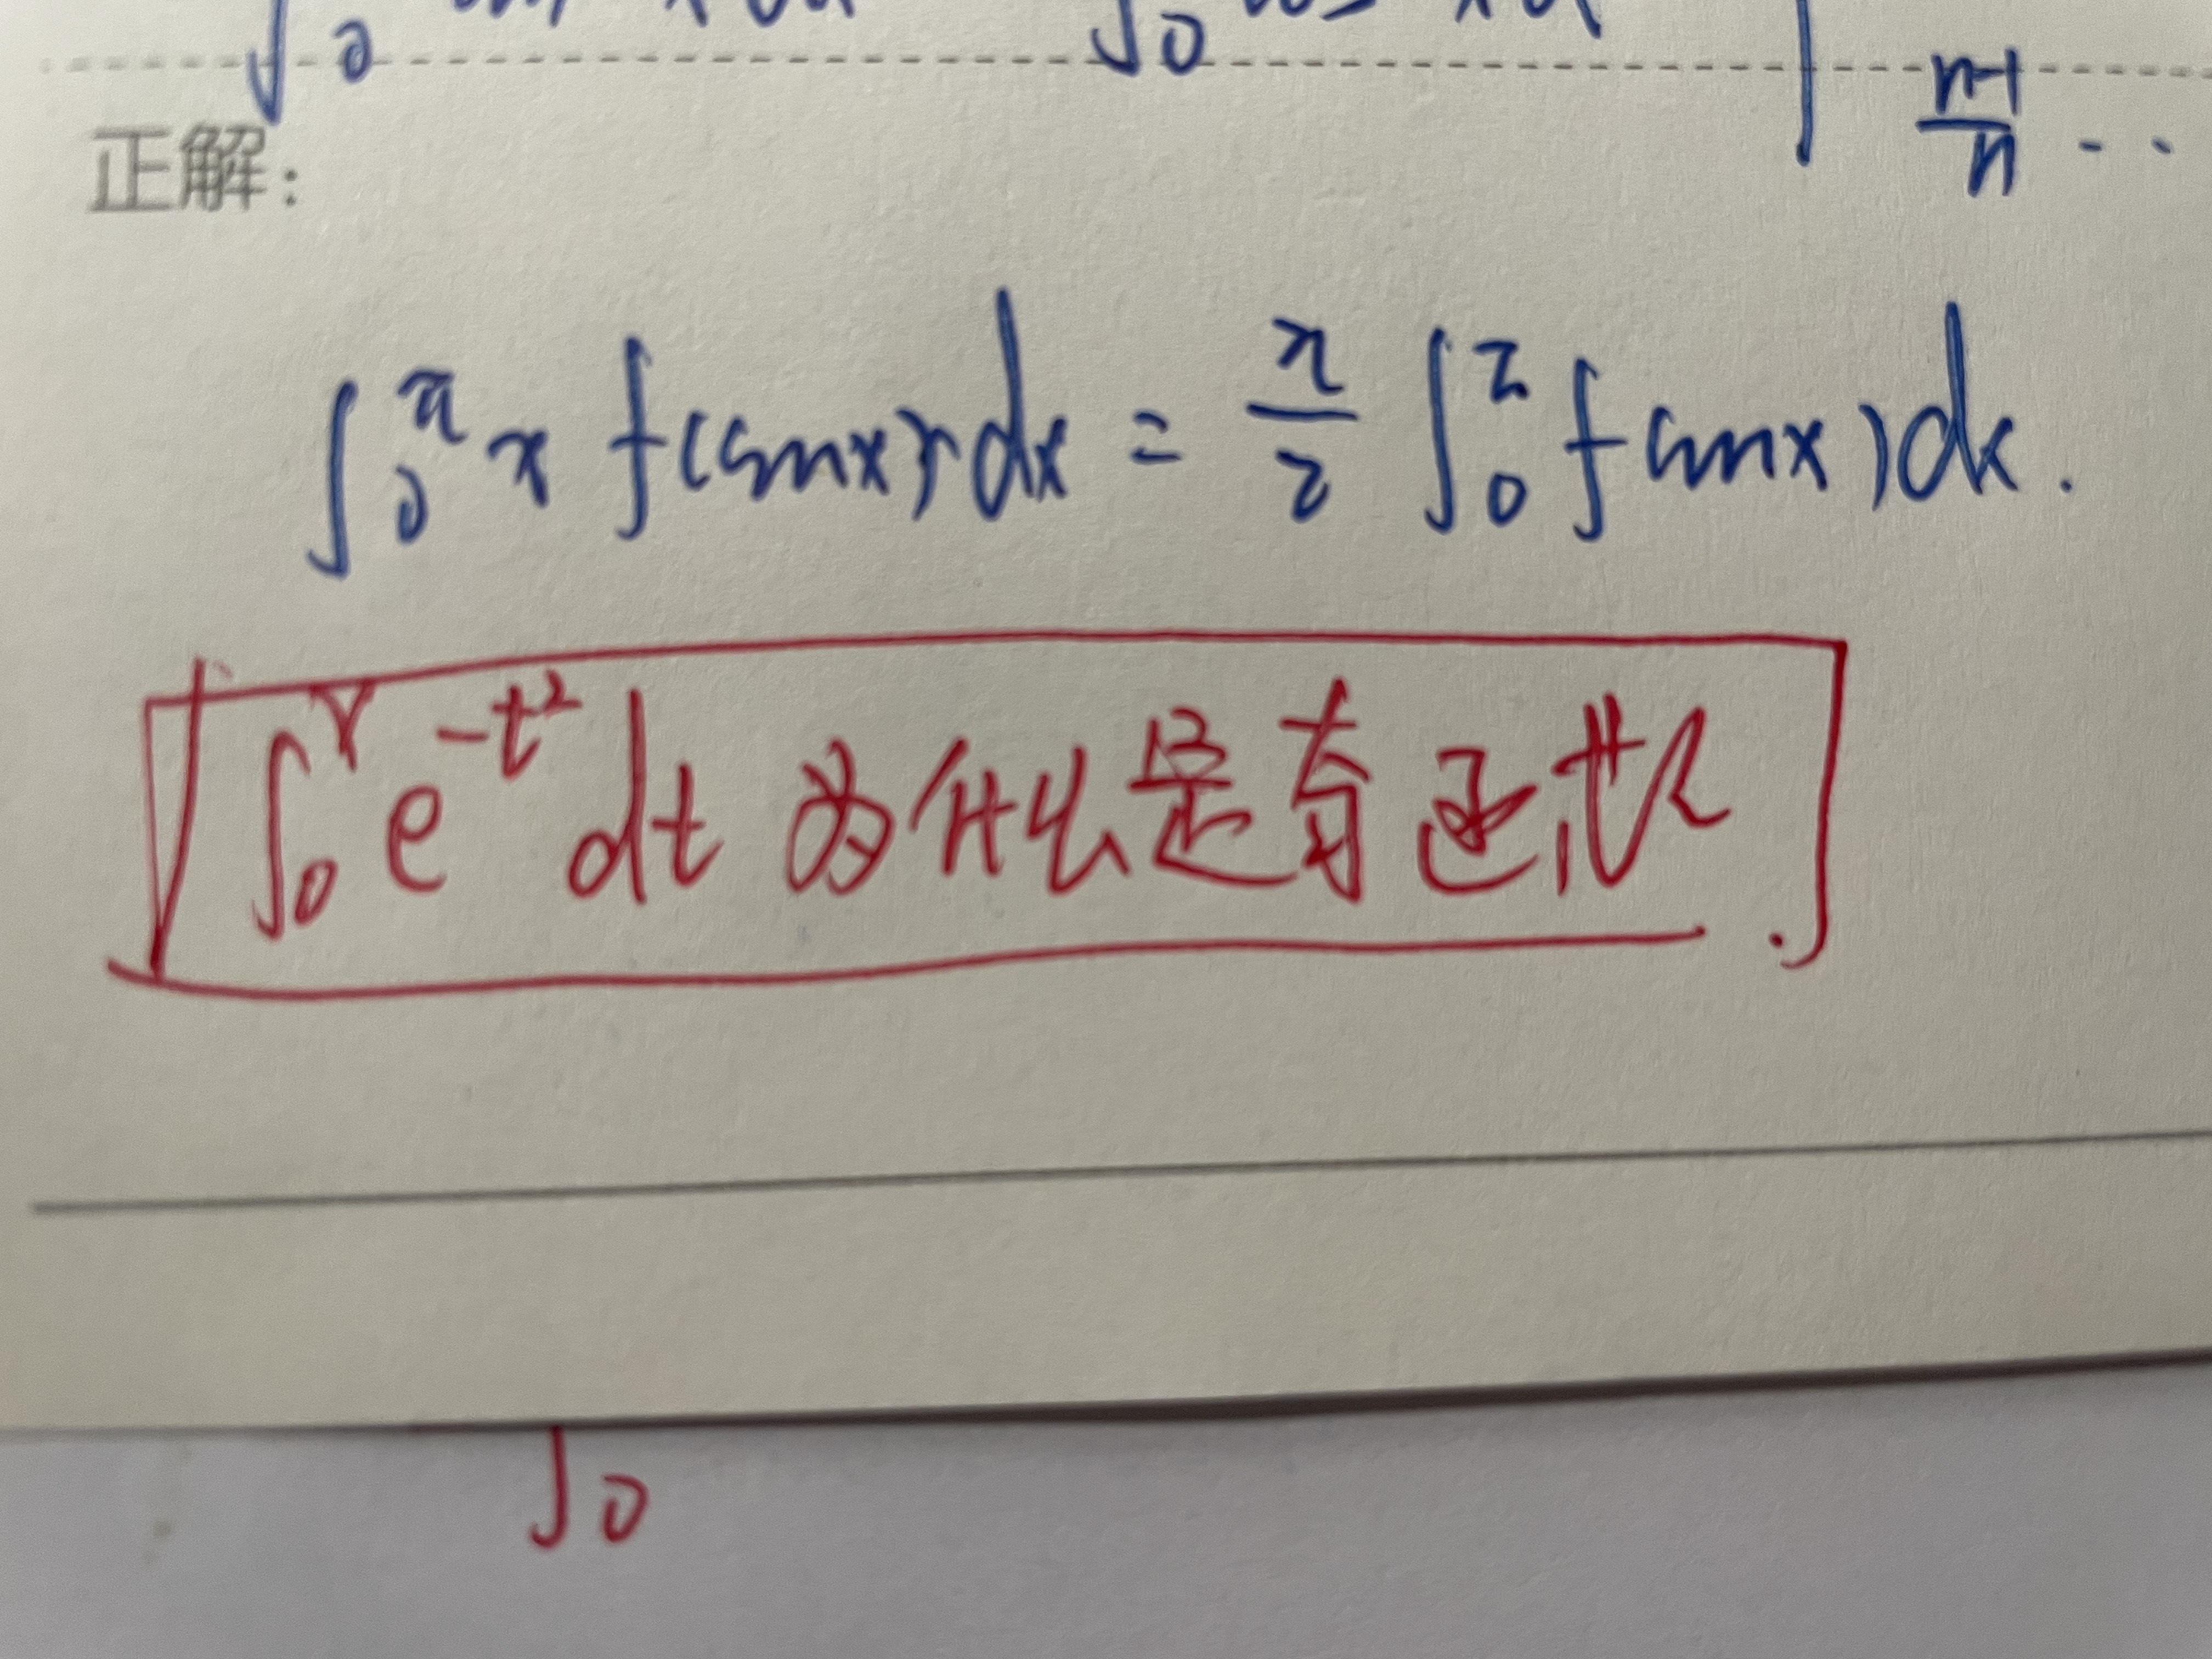 ∫₀
∫₀
n-1/n ··
正解:
∫₀^π x f(sinx)dx = π/2 ∫₀^π f(sinx)dx.
∫₀^x e^{-t²}dt 为什么是奇函数
∫₀